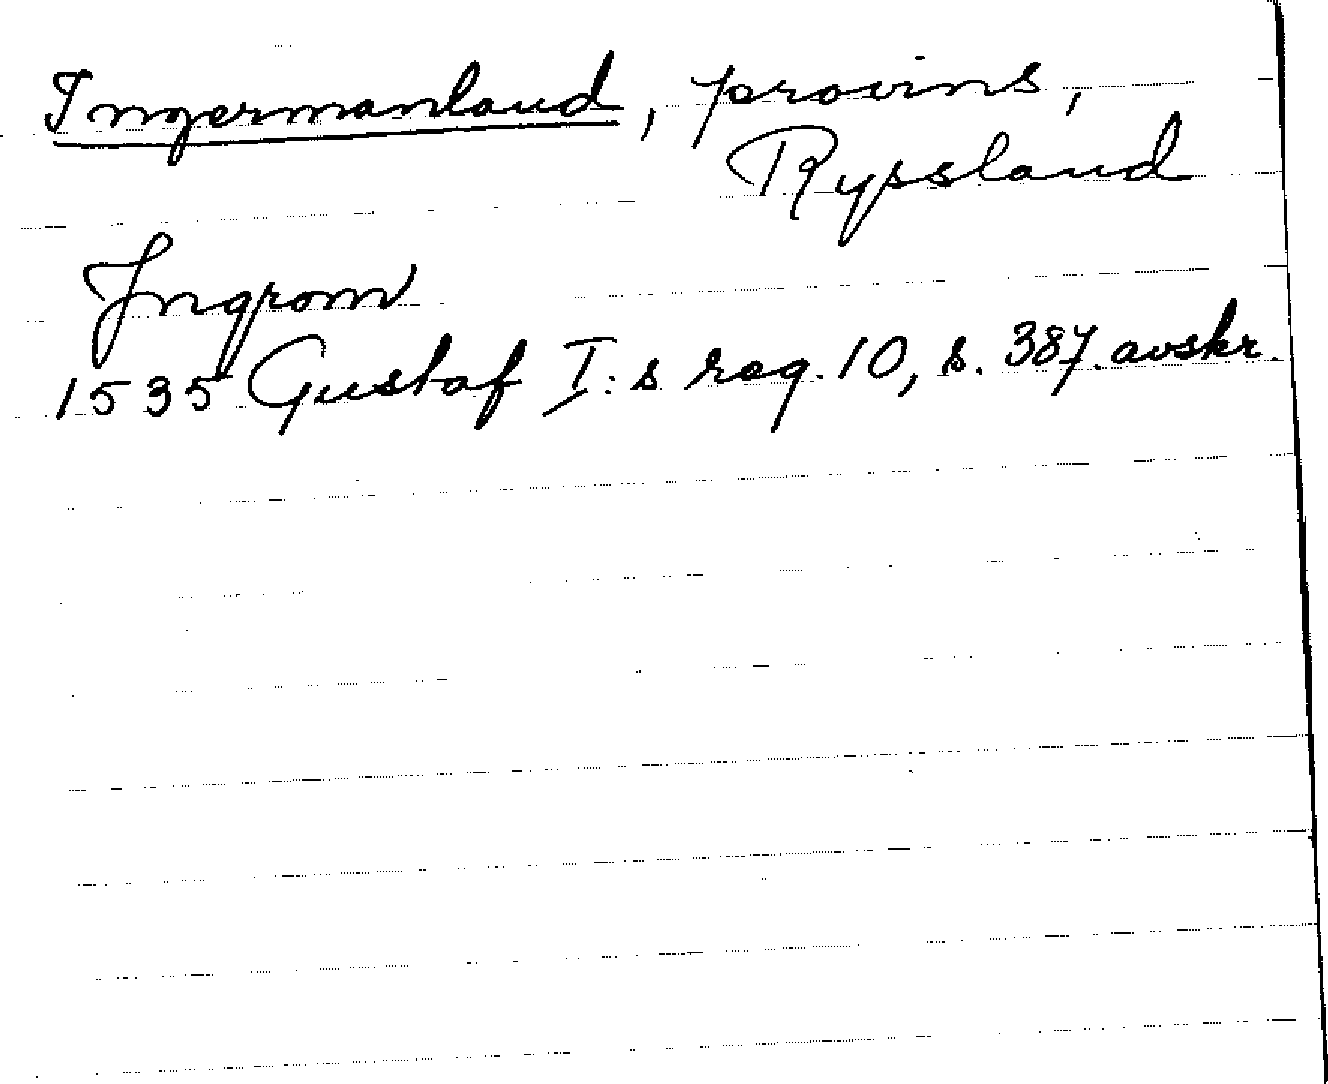 Ingermanland, provins,
Ryssland
Ingrom
1535 Gustaf I:s reg. 10, s. 387. avskr.